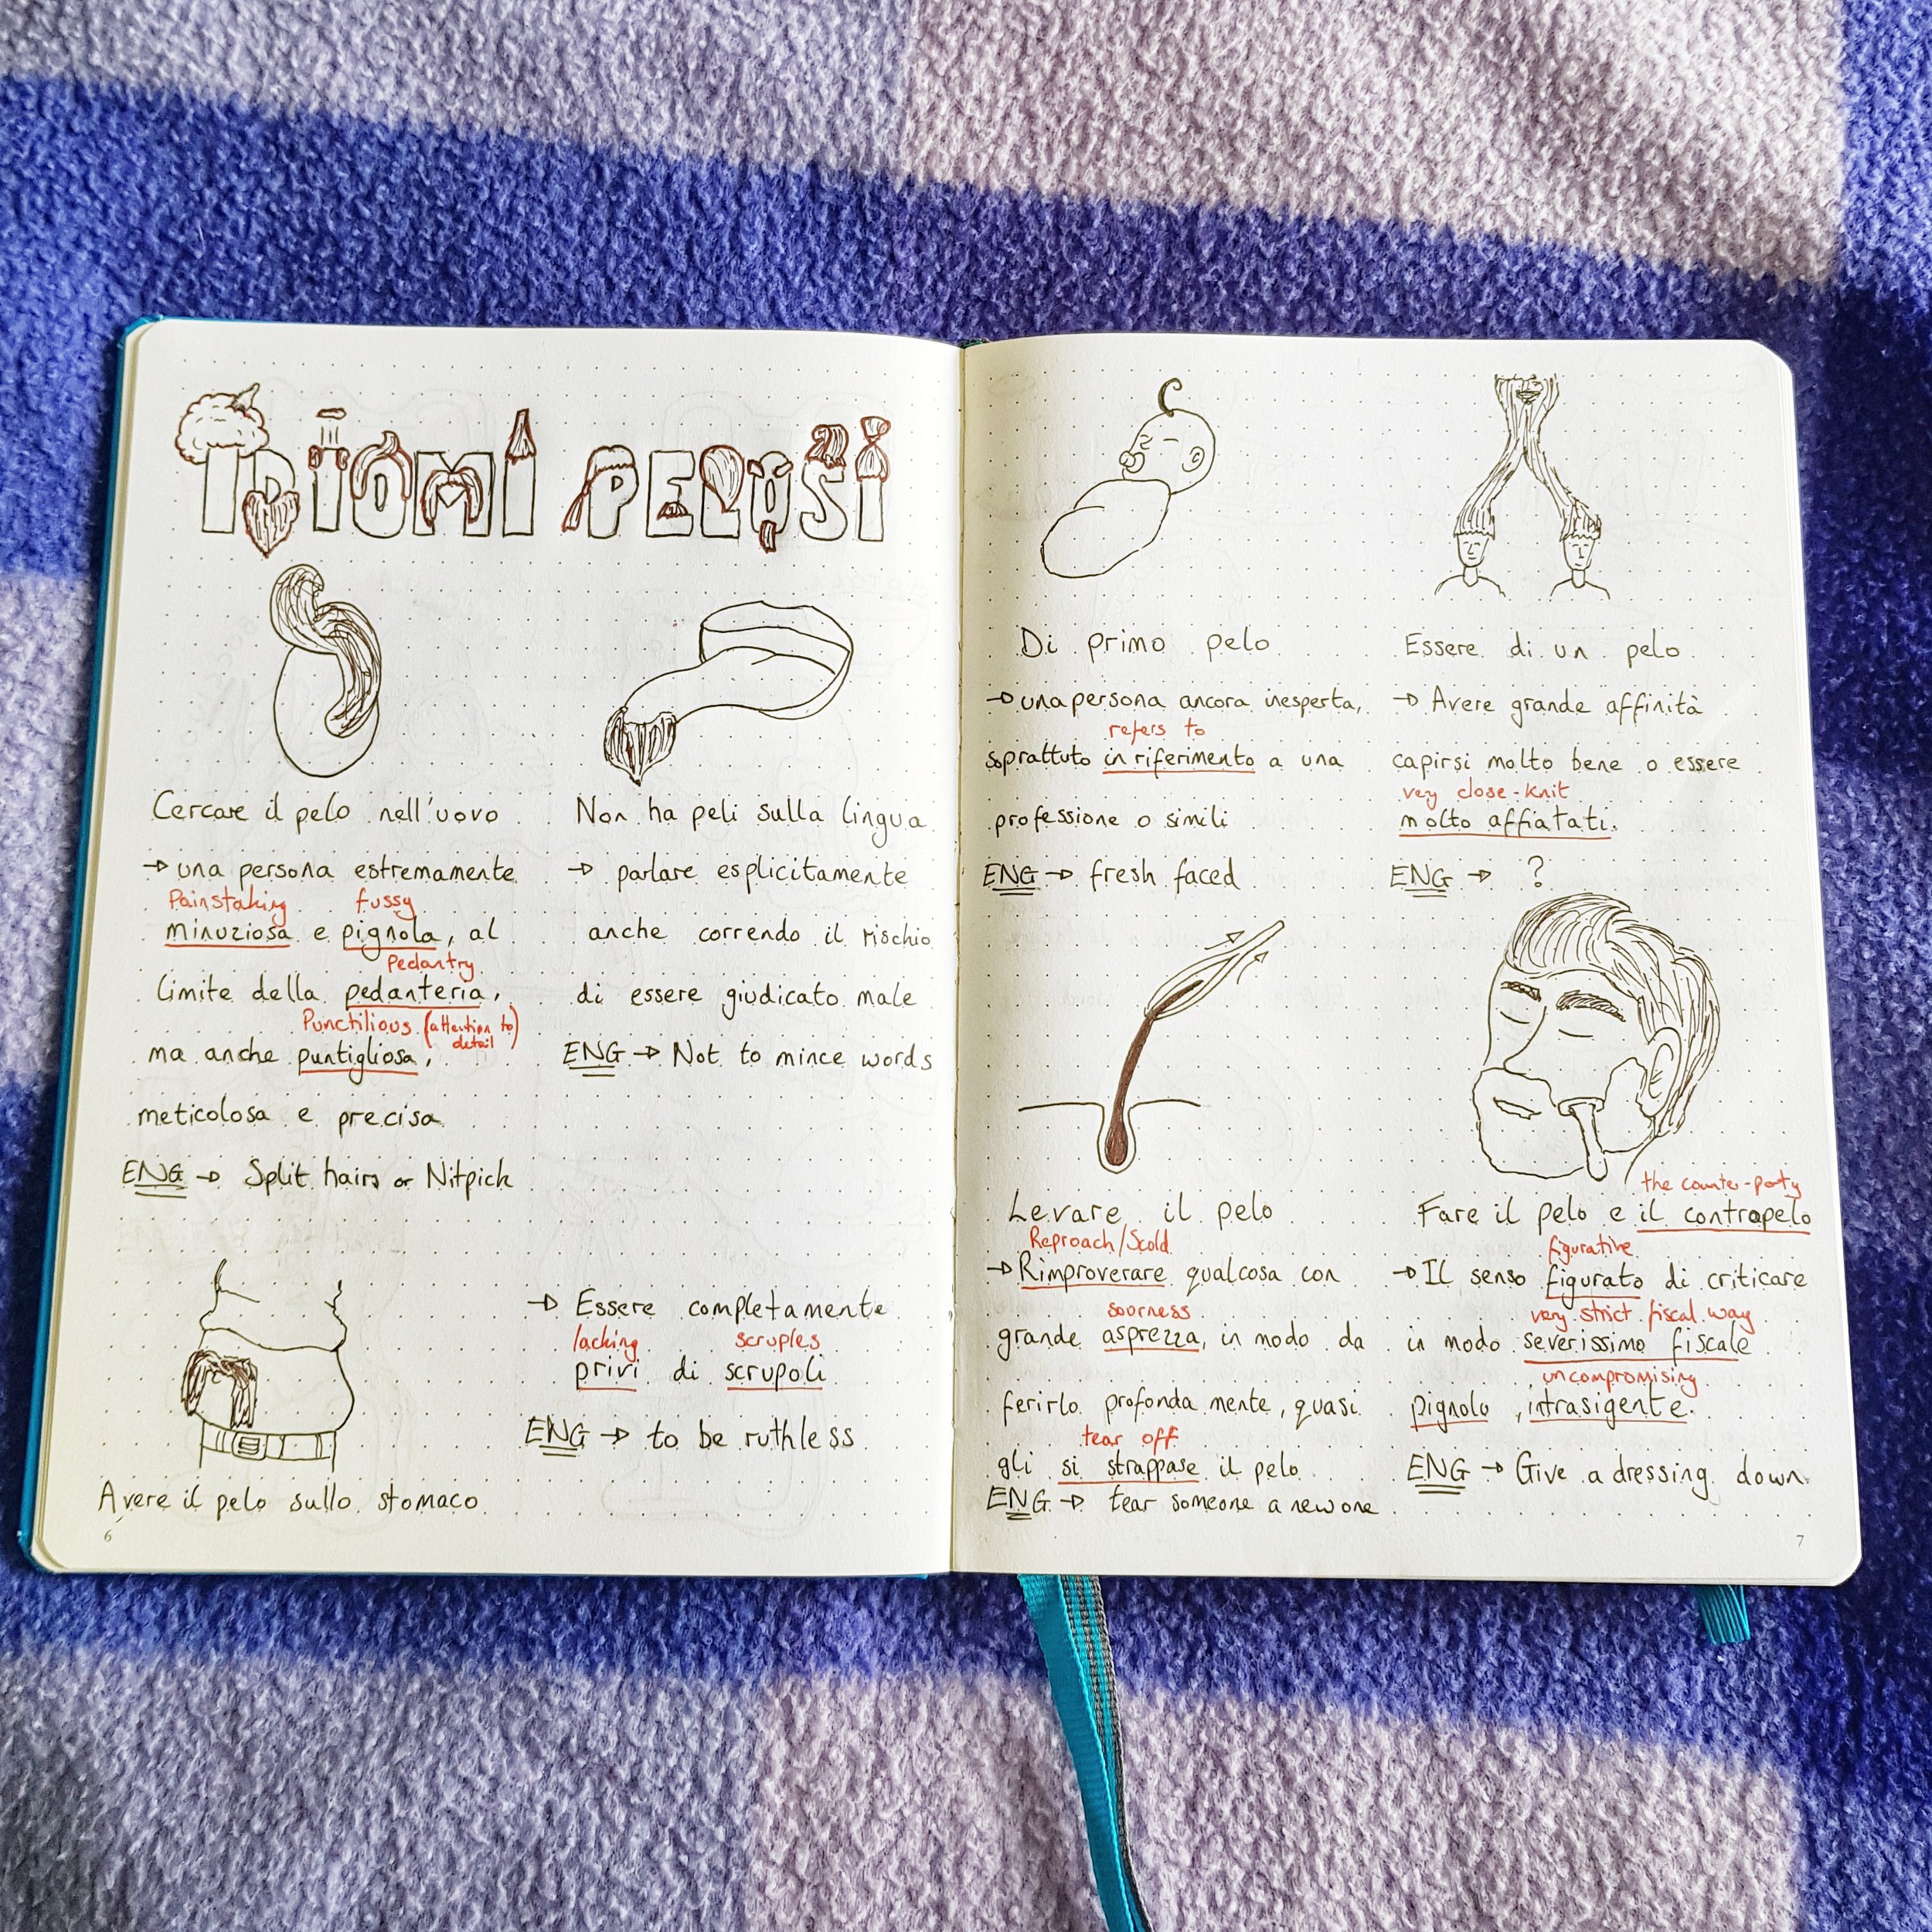 IDIOMI PELOSI
Cercare il pelo nell'uovo
→ una persona estremamente
Painstaking fussy
minuziosa e pignola, al
Pedantry
limite della pedanteria,
Punctilious (attention to detail)
ma anche puntigliosa,
meticolosa e precisa
ENG → Split hairs or Nitpick
Non ha peli sulla lingua
→ parlare esplicitamente
anche correndo il rischio
di essere giudicato male
ENG → Not to mince words
Avere il pelo sullo stomaco
→ Essere completamente
lacking scruples
privi di scrupoli
ENG → to be ruthless
6
Di primo pelo
→ una persona ancora inesperta,
refers to
soprattuto in riferimento a una
professione o simili
ENG → fresh faced
Essere di un pelo
→ Avere grande affinità
capirsi molto bene o essere
very close-knit
molto affiatati.
ENG → ?
Levare il pelo
Reproach/Scold
→ Rimproverare qualcosa con
sourness
grande asprezza, in modo da
ferirlo profonda mente, quasi
tear off
gli si strappase il pelo
ENG → tear someone a new one
the counter-party
Fare il pelo e il contropelo
figurative
→ Il senso figurato di criticare
very strict fiscal way
in modo severissimo fiscale
uncompromising
pignolo, intrasigente.
ENG → Give a dressing down
7